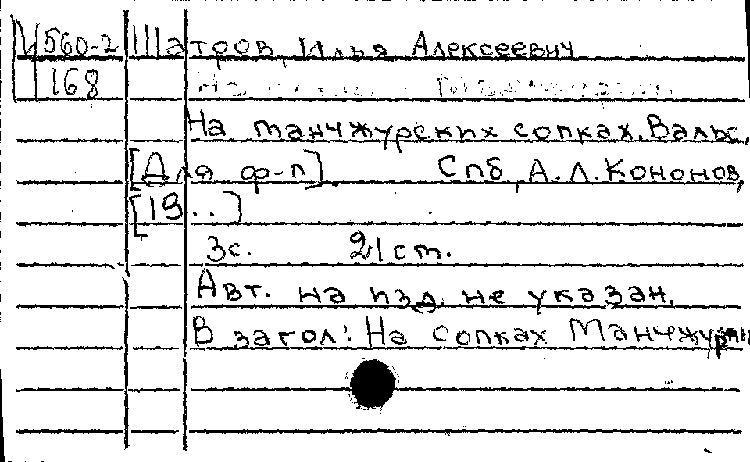 М560-2 Шатров, Илья Алексеевич
168
На манчжурских сопках. Вальс.
[Для ф-п] Спб, А.Л. Кононов,
[19..]
3с. 21 cm.
Авт. на изд. не указан.
В загол: На сопках Манчжурии